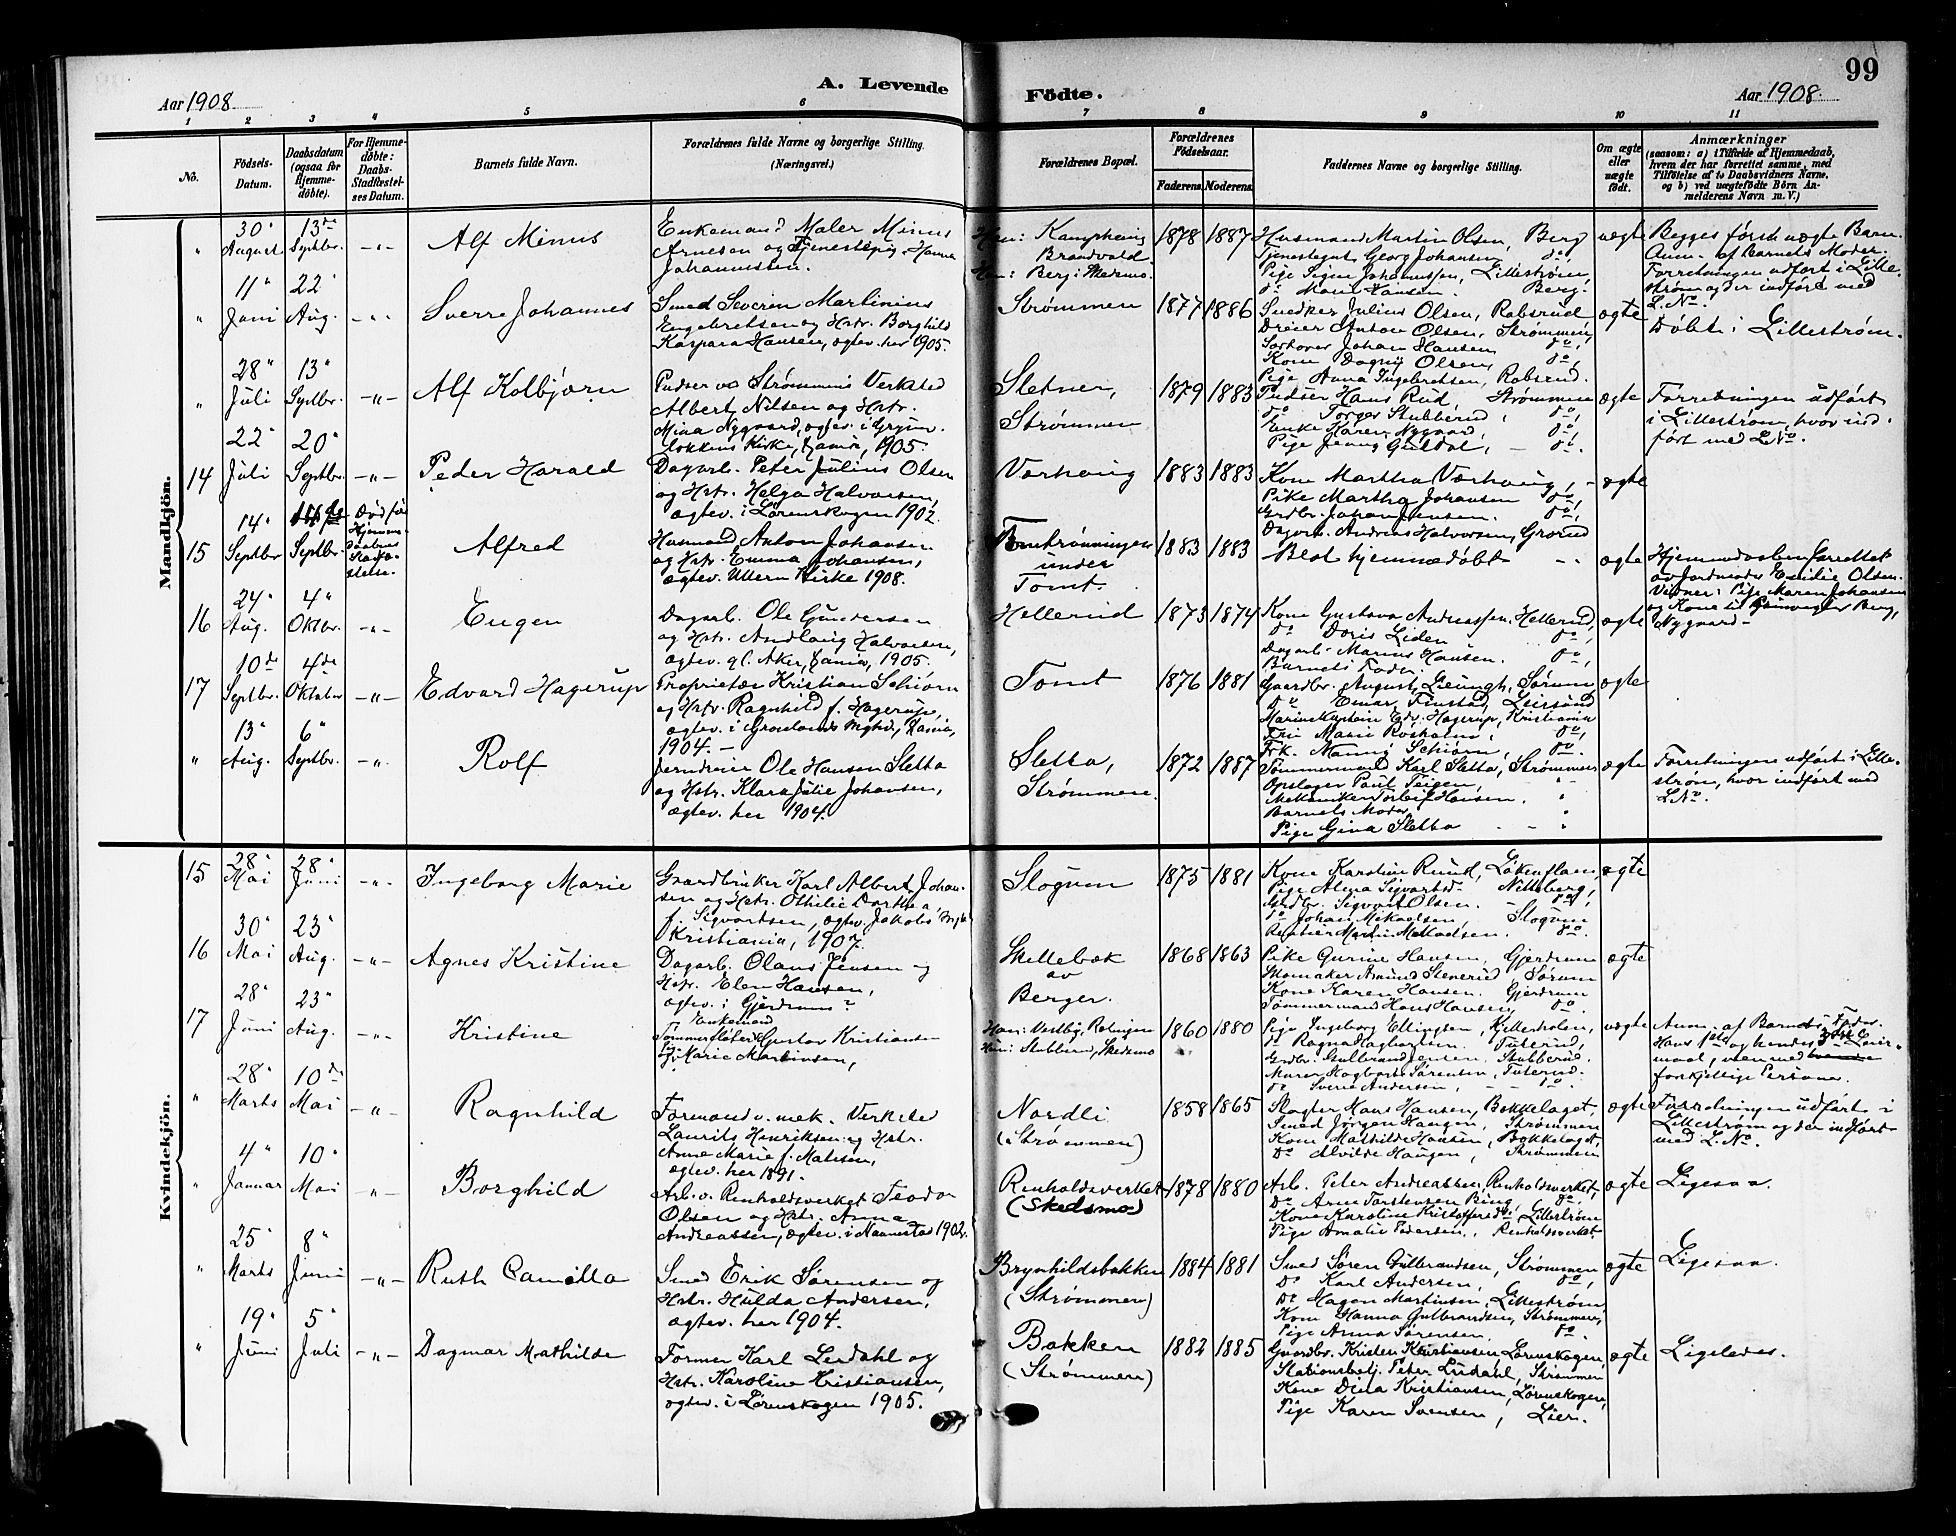 99
Aar 1908.
A. Levende Födte.
Aar 1908.
1 2 3 4 5 6 7 8 9 10 11
No.
Födsels-Datum.
Daabsdatum (ogsaa för Hjemmedöbte).
For Hjemmedöbte: Daabs-Stadfæstelses Datum.
Barnets fulde Navn.
Forældrenes fulde Navne og borgerlige Stilling. (Næringsvei.)
Forældrenes Bopæl.
Forældrenes Födselsaar.
Faderens. Moderens.
Faddernes Navne og borgerlige Stilling.
Om ægte eller uægte födt.
Anmærkninger
(saasom: a) i Tilfælde af Hjemmedaab, hvem der har forrettet samme, med Tilföielse af to Daabsvidners Navne, og b) ved uægtefödte Börn Anmelderens Navn m. V.)
Mandkjön.
" 30" August 13de Septbr. -"- Alf Minus
Enkemand Maler Minus
Arnesen og Tjenestepig. Hanna
Johannessen.
Brandvold.
Hun: Berg i Skedsmo.
1878 1887
Husmand Martin Olsen, Berg
Tjenestegut Georg Johansen do,
Pige Signe Johannessen, Lillestrøm,
do Marie Hansen. Berg.
uægte
Begges første uægte Barn.
Anm. af Barnets Moder.
Forretningen udført i Lille-
strøm og der indført med
L. No.
" 11" Juni 22" Aug. -"- Sverre Johannes
Smed Severin Martinius
Engebretsen og Hstr. Borghild
Kaspara Hansen, ægtev. her 1905.
Strømmen
1877 1886
Snedker Julius Olsen, Robsrud
Dreier Anton Olsen, Strømmen,
Johan Hansen do,
Kone Dagny Olsen, do,
Pige Anna Ingebretsen, Robsrud.
ægte
Døbt i Lillestrøm.
" 28" Juli 13" Septbr. -"- Alf Kolbjørn
Pudser v. Strømmens Verksted
Albert Nilsen og Hstr.
Mina Nygaard, ægtev. i Grøn-
lokkens Kirke, Xania, 1905.
Sletner,
Strømmen
1879 1883
Pudser Hans Rud, Strømmen
do Torger Stubberud, do,
Enke Karen Nygaard, do,
Pige Jenny Guldal, - do.
ægte
Forretningen udført
i Lillestrøm, hvor ind-
ført med L. No.
14 22" Juli 20" Septbr. -"- Peder Harald
Dagarb. Peter Julius Olsen
og Hstr. Helga Halvorsen,
ægtev. i Lørenskogen 1902.
Værhaug
1883 1883
Kone Martha Værhaug, -
Pike Martha Johansen do,
Grdbr. Johan Jensen. do,
Dagarb. Andreas Halvorsen, Grorud
ægte
15 14" Septbr. Septbr. Død før Hjemmedaabens Stadfæstelse. Alfred
Husmand Anton Johansen
og Hstr. Emma Johansen,
ægtev. Ullern Kirke 1908.
under
Tomt.
1883 1883
Blot hjemmedøbt
ægte
Hjemmedaaben forrettet
av Jordmoder Emilie Olsen.
Vidner: Pige Maren Johansen
og Kone til Berg,
Nygaard.
16 24" Aug. 4" Oktbr. -"- Eugen
Dagarb. Ole Gundersen
og Hstr. Andlaug Halvorsen,
ægtev. gl. Aker, Xania, 1905.
Hellerud
1873 1874
Kone Gustava Andreassen, Hellerud,
do Doris Liden do,
Dagarb. Marius Hansen. do,
Barnets Fader.
ægte
17 10de Septbr. 4de Oktober -"- Edvard Hagerup
Proprietær Kristian Schiørn
og Hstr. Ragnhild f. Hagerup,
ægtev. i Grønlands Mghd, Xania,
1904. -
Tomt
1876 1881
Gaardbr. August Lieungh, Sørum
do Einar Finstad, Leirsund
Marinekaptein Edv. Hagerup, Kristiania
Fru Marie do,
Frk. Nanny Schiørn, do.
ægte
" 13" Aug. 6" Septbr. -"- Rolf
Jerndreier Ole Hansen Sletta
og Hstr. Klara Julie Johansen,
ægtev. her 1904.
Sletta,
Strømmen.
1872 1887
Tømmermand Karl Sletta, Strømmen
Opslager Paul Teigen, "
Mekaniker Torleif Hansen. "
Barnets Moder "
Pige Gina Sletta - - "
ægte
Forretningen udført i Lille-
strøm, hvor indført med
L. No.
Kvindekjön.
15 28" Mai 28" Juni -"- Ingeborg Marie
Gaardbruker Karl Albert Johan-
sen og Hstr. Othilie Dorthea
f. Sigvartsen, ægtev. Jakobs Mghd
Kristiania, 1907.
Slogum
1875 1881
Kone Karoline Ruud, Løkenflaen
Pige Alma Sigvartsd. Nitteberg,
Grdbr. Sigvart Olsen. - do,
do Johan Mikaelsen, Slogum
Rentier Martin Mikaelsen. do.
ægte
16 30" Mai 23" Aug. -"- Agnes Kristine
Dagarb. Olaus Jensen og
Hstr. Elen Hansen,
ægtev. i Gjerdrum?
Skellebæk
av
Berger.
1868 1863
Pike Gurine Hansen, Gjerdrum
Skomaker Amund Stenerud Sørum
Kone Karen Hansen. Gjerdrum
Tømmermand Hans Hansen, do
ægte
17 28" Juni 23" Aug. -"- Kristine
Enkemand
Tømmerfløter Gustav Kristiansen
og Marie Martinsen,
Han: Vestby, Rælingen
Hun: Stubberud, Skedsmo
1860 1880
Pige Ingeborg Ellingsen, Kjellerholen,
do Ragna Hagbartsen. Tuterud,
Grdbr. Gulbrand Jensen. Stubberud.
Murer Hagbart Sørensen, Tuterud.
do Sverre Andersen, - - do.
uægte
Anm. af Barnets Fader.
Hans 1ste og hendes Leier-
maal, men med
forskjellige Personer.
" 28" Marts 10de Mai -"- Ragnhild
Formand v. mek. Verksted
Laurits Henriksen og Hstr.
Anne Marie f. Madsen,
ægtev. her 1891.
Nordli
(Strømmen)
1858 1865
Slagter Hans Hansen, Bakkelaget,
Smed Jørgen Haugen, Strømmen
Kone Mathilde Hansen, Bakkelaget,
Do Alvilde Haugen, Strømmen
ægte
Forretningen udført i
Lillestrøm og der indført
med L. No
" 4" Januar 10" Mai -"- Borghild
Arb. v. Renholdsverket Teodor
Olsen og Hstr. Anna
Andreassen, ægtev. i Naannestad 1902.
Renholdsverket
(Skedsmo)
1878 1880
Arb. Peter Andreassen, Renholdsverket,
Do Arne Torstensen Bing do.
Kone Karoline Kristoffersd, Lillestrøm
Pige Amalie Pedersen, Renholdsverket
ægte
Ligesaa.
" 25" Marts 8" Juni -"- Ruth Camilla
Smed Erik Sørensen og
Hstr. Hulda Andersen,
ægtev. her 1904.
Brynhildsbakken
(Strømmen)
1884 1881
Smed Søren Gulbrandsen, Strømmen
Do Karl Andersen, do,
Do Hagon Martinsen, Lillestrøm,
Kone Hanna Gulbrandsen, Strømmen,
Pige Anna Sørensen. do.
ægte
Ligesaa.
" 19" Juni 5" Juli -"- Dagmar Mathilde
Former Karl Lerdahl og
Hstr. Karoline Kristiansen,
ægtev. i Lørenskogen 1905.
Bakken
(Strømmen)
1882 1885
Gaardbr. Kristen Kristiansen Lørenskogen,
Stationsbetj. Peter Lurdahl, Strømmen
Kone Dina Kristiansen, Lørenskogen,
Pige Karen Svensen, Lier.
ægte
Ligeledes.